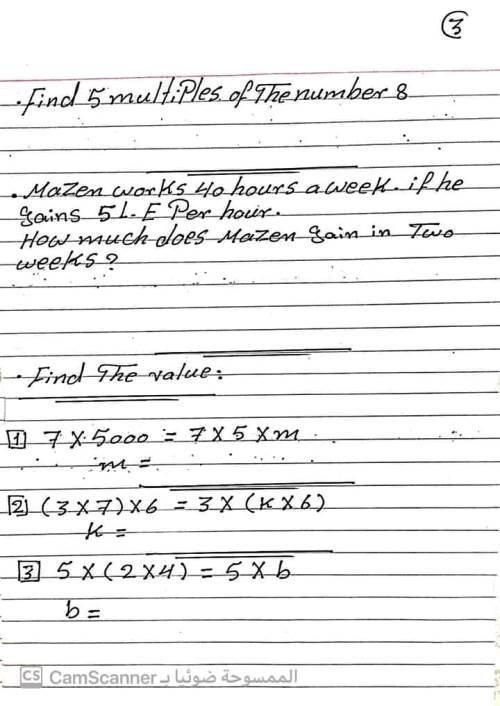 3
. Find 5 multiples of The number 8
. Mazen works 40 hours a week. if he
gains 5 L.E Per hour.
How much does Mazen gain in Two
weeks?
. Find The value:
1 7 X 5000 = 7 X 5 X m
m =
2 (3 X 7) X 6 = 3 X (K X 6)
K =
3 5 X (2 X 4) = 5 X b
b =
CS CamScanner الممسوحة ضوئيا بـ